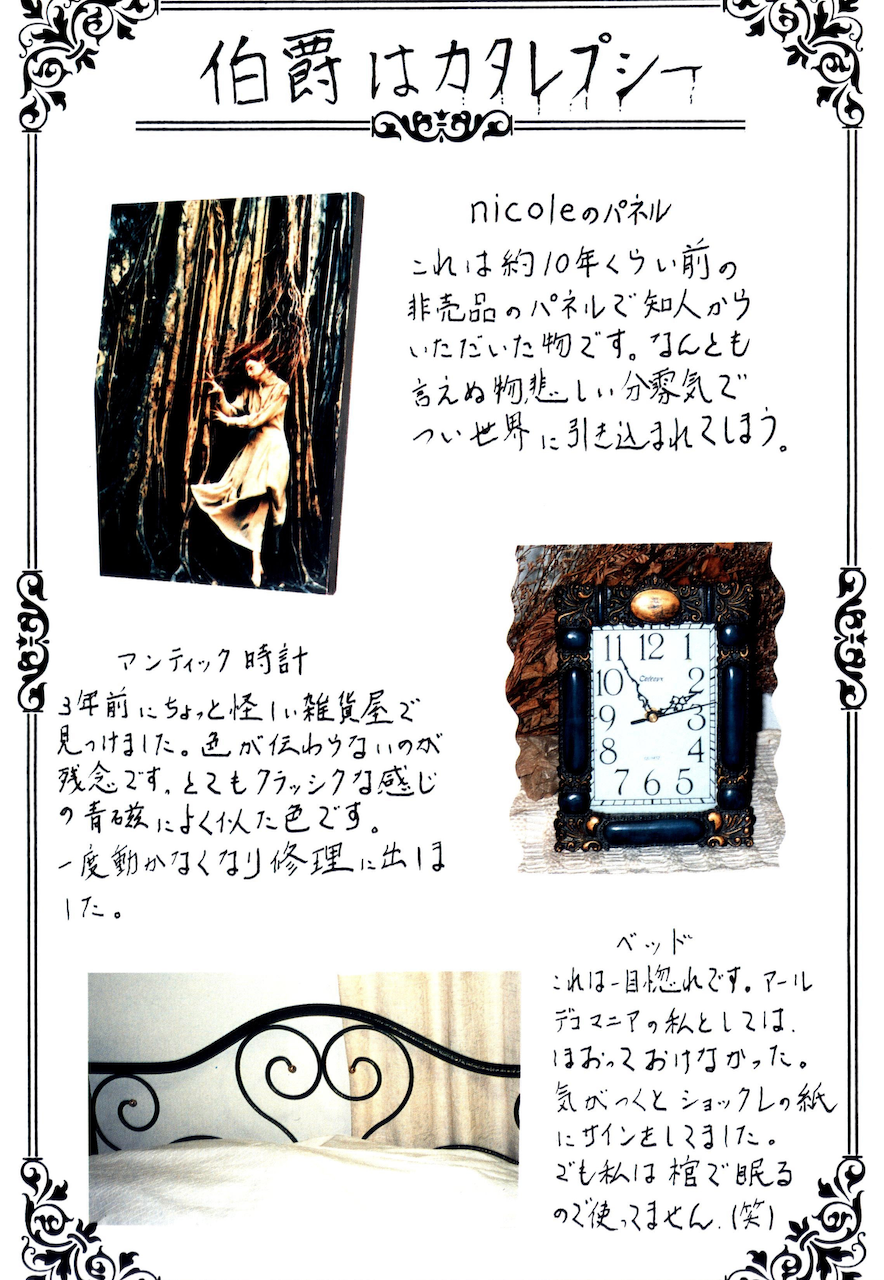 伯爵はカタレプシー
nicoleのパネル
これは約10年くらい前の
非売品のパネルで知人から
いただいた物です。なんとも
言えぬ物悲しい分雰気で
つい世界に引き込まれてしまう。
11 12 1
10 2
9 3
8 4
7 6 5
アンティック時計
3年前にちょっと怪しい雑貨屋で
見つけました。色が伝わらないのが
残念です。とてもクラッシクな感じ
の青磁によく似た色です。
一度動かなくなり修理に出しま
した。
ベッド
これは一目惚れです。アール
デコマニアの私としては、
ほおっておけなかった。
気がつくとショックレの紙
にサインをしてました。
でも私は棺で眠る
ので使ってません。(笑)